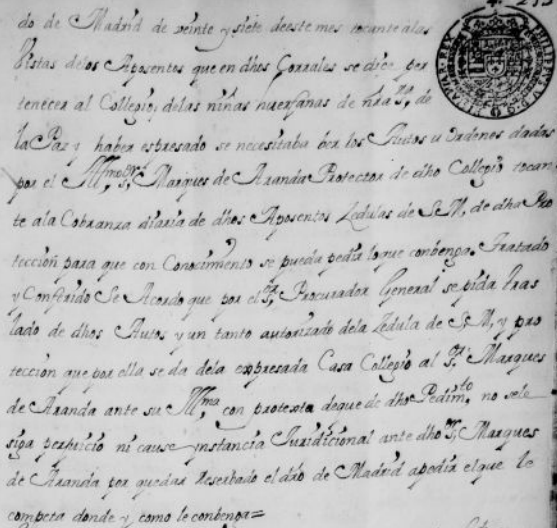 do de Madrid de veinte y siete deeste mes tocante alas
Vistas delos Aposentos que en dhos Corrales se dice per
tenecer al Collegio, delas niñas huerfanas de nra Sª, de
la Paz y haber espresado se necesitaba ber los Autos u Ordenes dadas
por el Illmo Sr, Marques de Aranda Protector de dho Collegio tocan
te ala Cobranza diaria de dhos Aposentos Zedulas de S.M, de dha Pro
teccion para que con Conocimiento se pueda pedir loque conbenga. Tratado
y Conferido Se Acordo que por el Sr, Procurador General se pida tras
lado de dhos Autos y un tanto autorizado dela Zedula de S.M, y pro
teccion que por ella se da dela expresada Casa Collegio al Sr, Marques
de Aranda ante su Illma con protexta deque de dho Pedimto no sele
siga perhuicio ni cause ynstancia Juridicional ante dho Sr, Marques
de Aranda por quedar Reserbado el dro de Madrid apedir elque le
competa donde y como le conbenga=